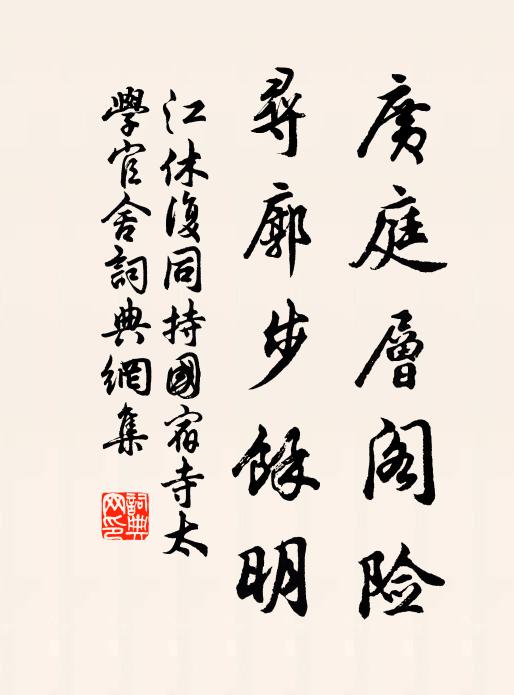 廣庭層阁险
尋廓步餘明
江休復同持國宿寺太
學官舍詞典網集
詞典
网印